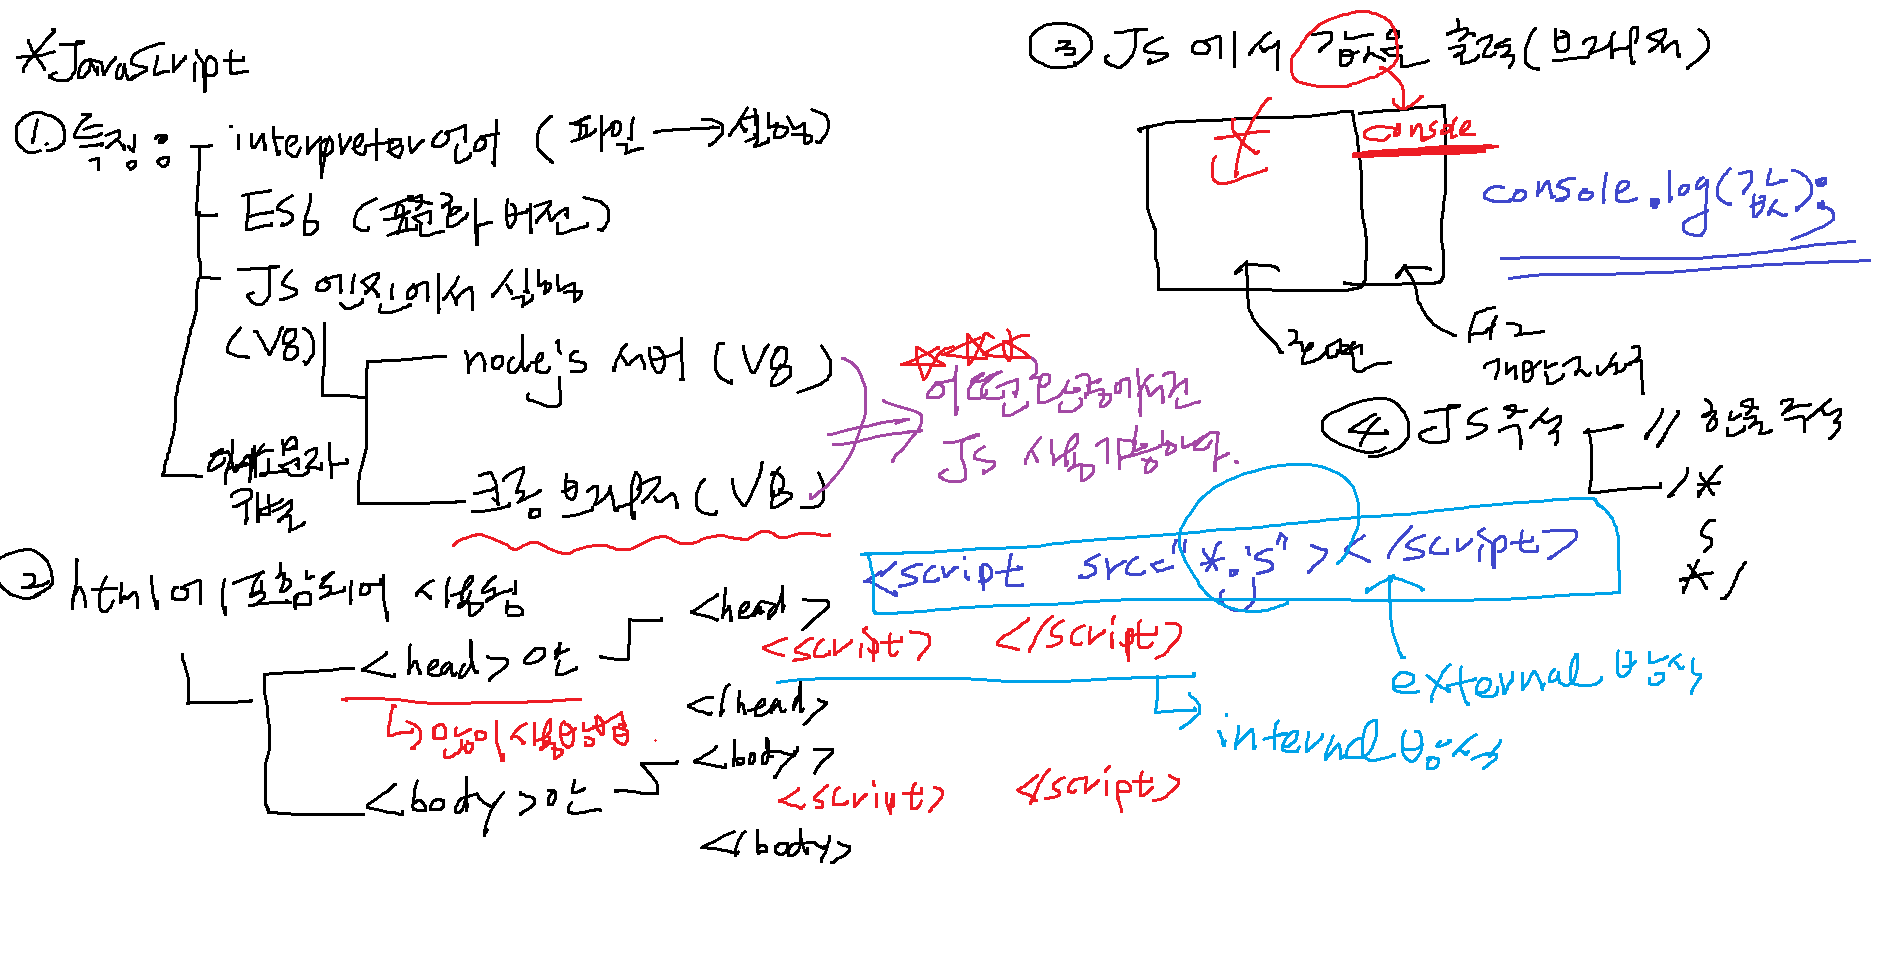 *JavaScript
① 특징 :
interpreter언어 ( 파일 → 실행)
ES6 (표준화 버전)
JS 엔진에서 실행
(V8)
nodejs 서버 (V8)
크롬 브라우저 (V8)
대소문자
구별
어떤 환경에서건
JS 사용가능하다.
② html에 포함되어 사용됨
<head>안
많이 사용
<body>안
<head>
<script> </script>
</head>
<body>
<script> </script>
</body>
<script src="*.js"></script>
external 방식
internal 방식
③ JS 에서 값을 출력 (브라우저)
console
console.log(값);
화면
F12
개발자도구
④ JS주석
// 한줄 주석
/*
*/